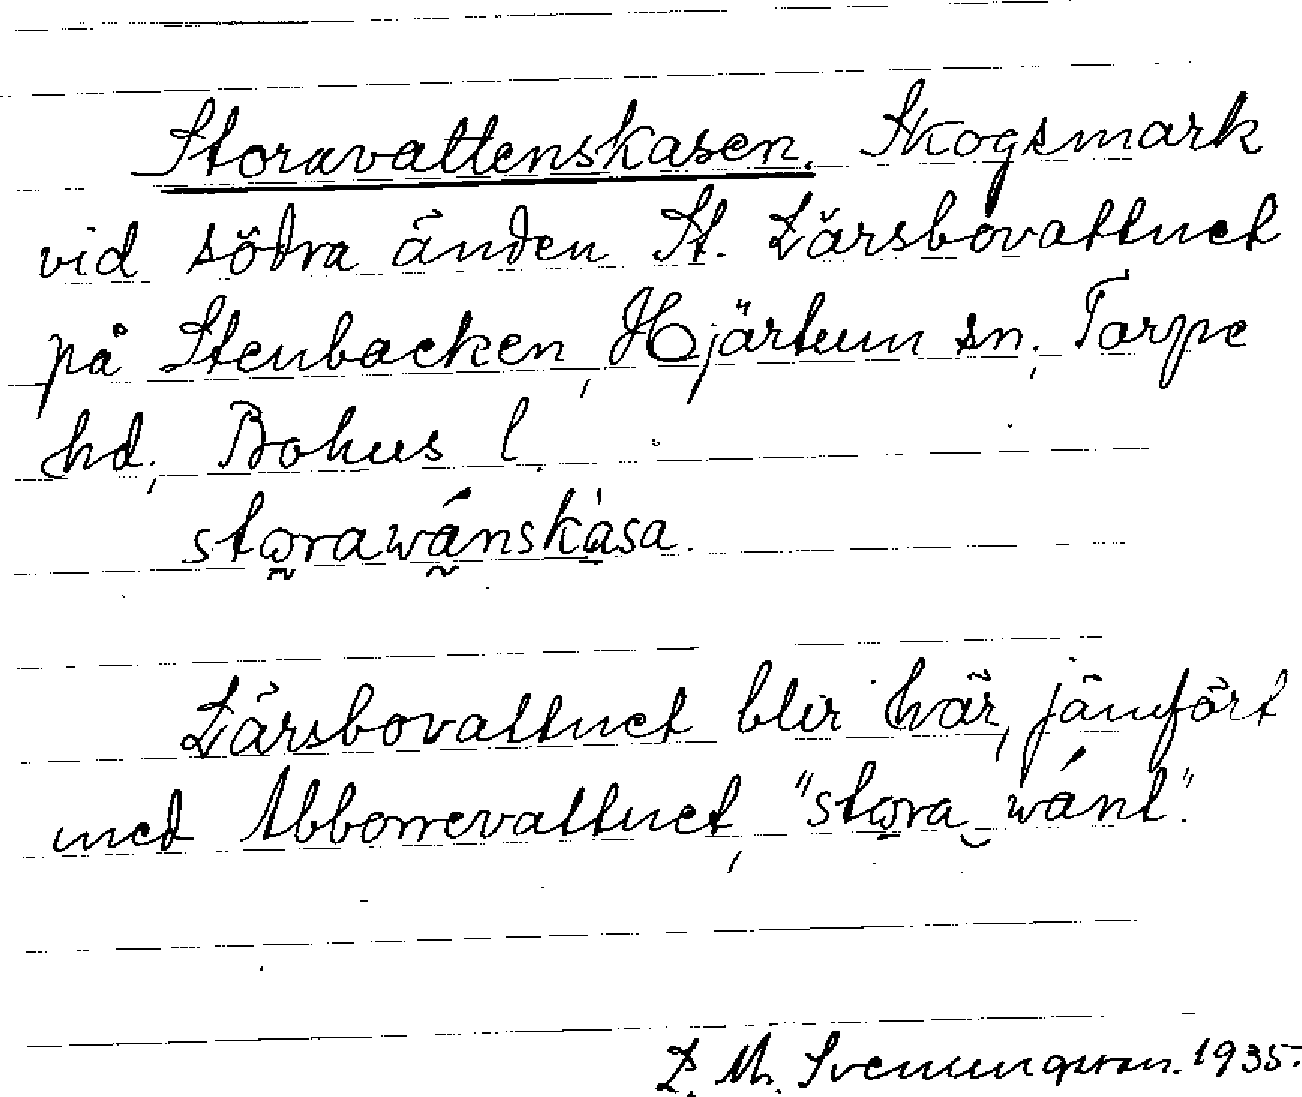 Storavattenskasen. Skogsmark
vid södra änden St. Lärsbovattnet
på Stenbacken, Hjärtum sn, Torpe
hd, Bohus l.
storawánskàsa.
Lärsbovattnet blir här, jämfört
med Abborrevattnet, "stora wánt".
L. M. Svenungsson. 1935.